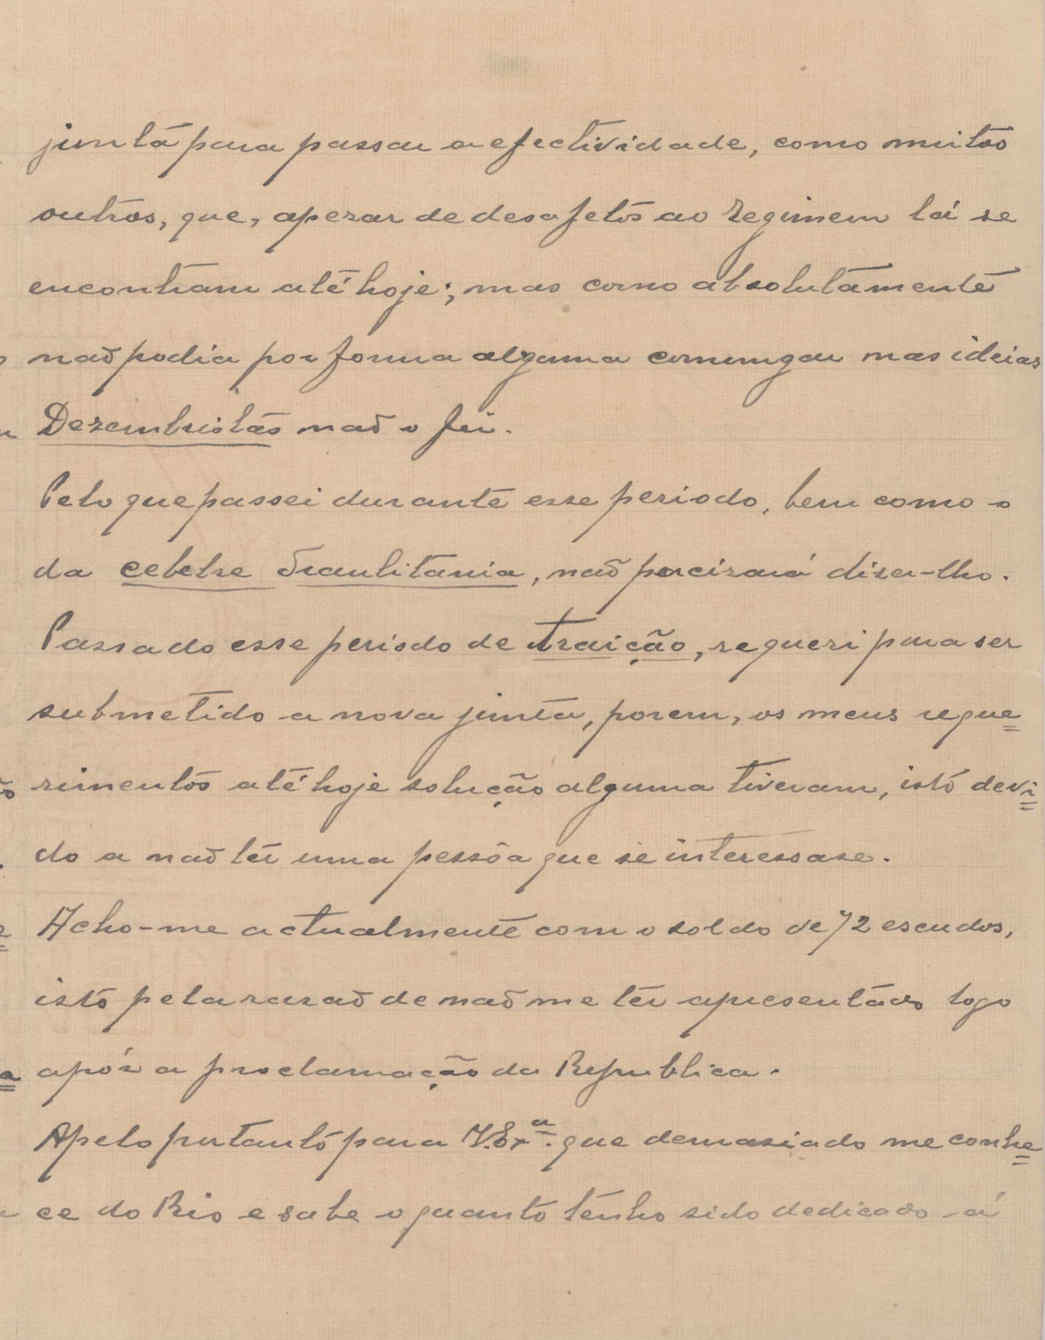 junta para passar a efectividade, como muitos
outros, que, apezar de desafetos ao Regimem lá se
encontram até hoje; mas como absolutamente
não podia por forma alguma comungar nas ideias
Dezembristas não o fui.
Pelo que passei durante esse periodo, bem como o
da celebre Traulitania, não percizará dizer-lho.
Passado esse periodo de traição, requeri para ser
submetido a nova junta, porem, os meus reque
rimentos até hoje solução alguma tiveram, isto devi
do a não ter uma pessôa que se interessase.
Acho-me actualmente com o soldo de 72 escudos,
isto pela razaõ de não me ter apresentado logo
após a proclamação da Republica.
Apelo purtanto para V. Exª. que demasiado me conhe
ce do Rio e sabe o quanto tenho sido dedicado á